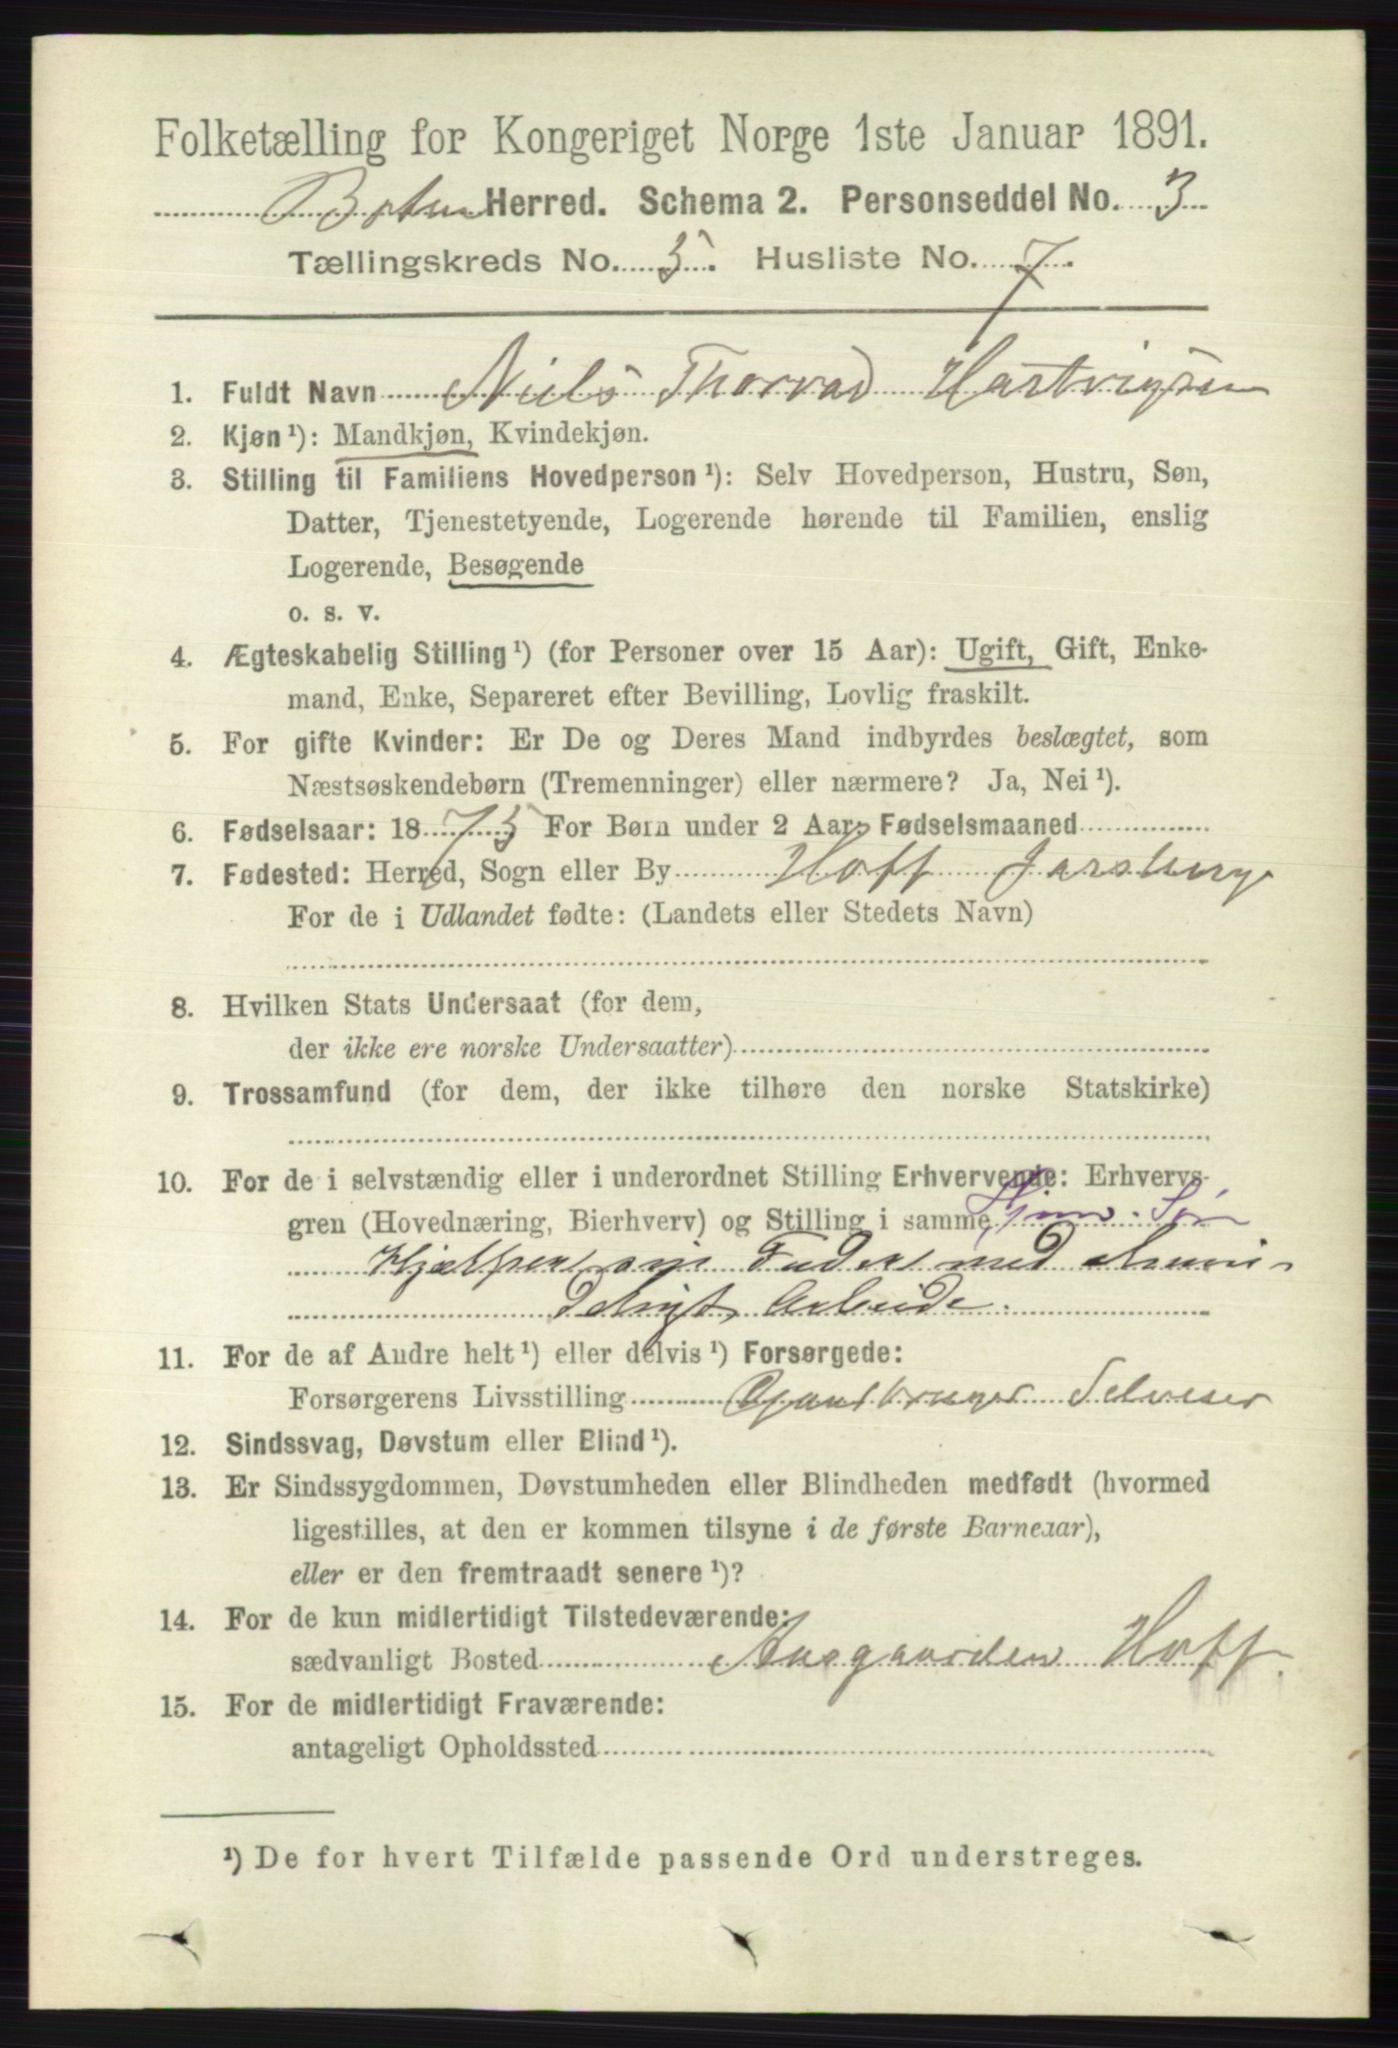 Folketælling for Kongeriget Norge 1ste Januar 1891.
Botne Herred. Schema 2. Personseddel No. 3
Tællingskreds No. 5. Husliste No. 7.
1. Fuldt Navn Niels Thorvad Hartvigsen
2. Kjøn¹): Mandkjøn, Kvindekjøn.
3. Stilling til Familiens Hovedperson¹): Selv Hovedperson, Hustru, Søn,
Datter, Tjenestetyende, Logerende hørende til Familien, enslig
Logerende, Besøgende
o. s. v.
4. Ægteskabelig Stilling¹) (for Personer over 15 Aar): Ugift, Gift, Enke-
mand, Enke, Separeret efter Bevilling, Lovlig fraskilt.
5. For gifte Kvinder: Er De og Deres Mand indbyrdes beslægtet, som
Næstsøskendebørn (Tremenninger) eller nærmere? Ja, Nei¹).
6. Fødselsaar: 1875 For Børn under 2 Aar: Fødselsmaaned
7. Fødested: Herred, Sogn eller By Hoff Jarsberg
For de i Udlandet fødte: (Landets eller Stedets Navn)
8. Hvilken Stats Undersaat (for dem,
der ikke ere norske Undersaatter)
9. Trossamfund (for dem, der ikke tilhøre den norske Statskirke)
10. For de i selvstændig eller i underordnet Stilling Erhvervende: Erhvervs-
gren (Hovednæring, Bierhverv) og Stilling i samme, Søn
Hjælper sin Fader med almin-
deligt Arbeide.
11. For de af Andre helt¹) eller delvis¹) Forsørgede:
Forsørgerens Livsstilling Gaardbruger Selveier
12. Sindssvag, Døvstum eller Blind¹).
13. Er Sindssygdommen, Døvstumheden eller Blindheden medfødt (hvormed
ligestilles, at den er kommen tilsyne i de første Barneaar),
eller er den fremtraadt senere¹)?
14. For de kun midlertidigt Tilstedeværende:
sædvanligt Bosted Aasgaarden Hoff.
15. For de midlertidigt Fraværende:
antageligt Opholdssted
¹) De for hvert Tilfælde passende Ord understreges.